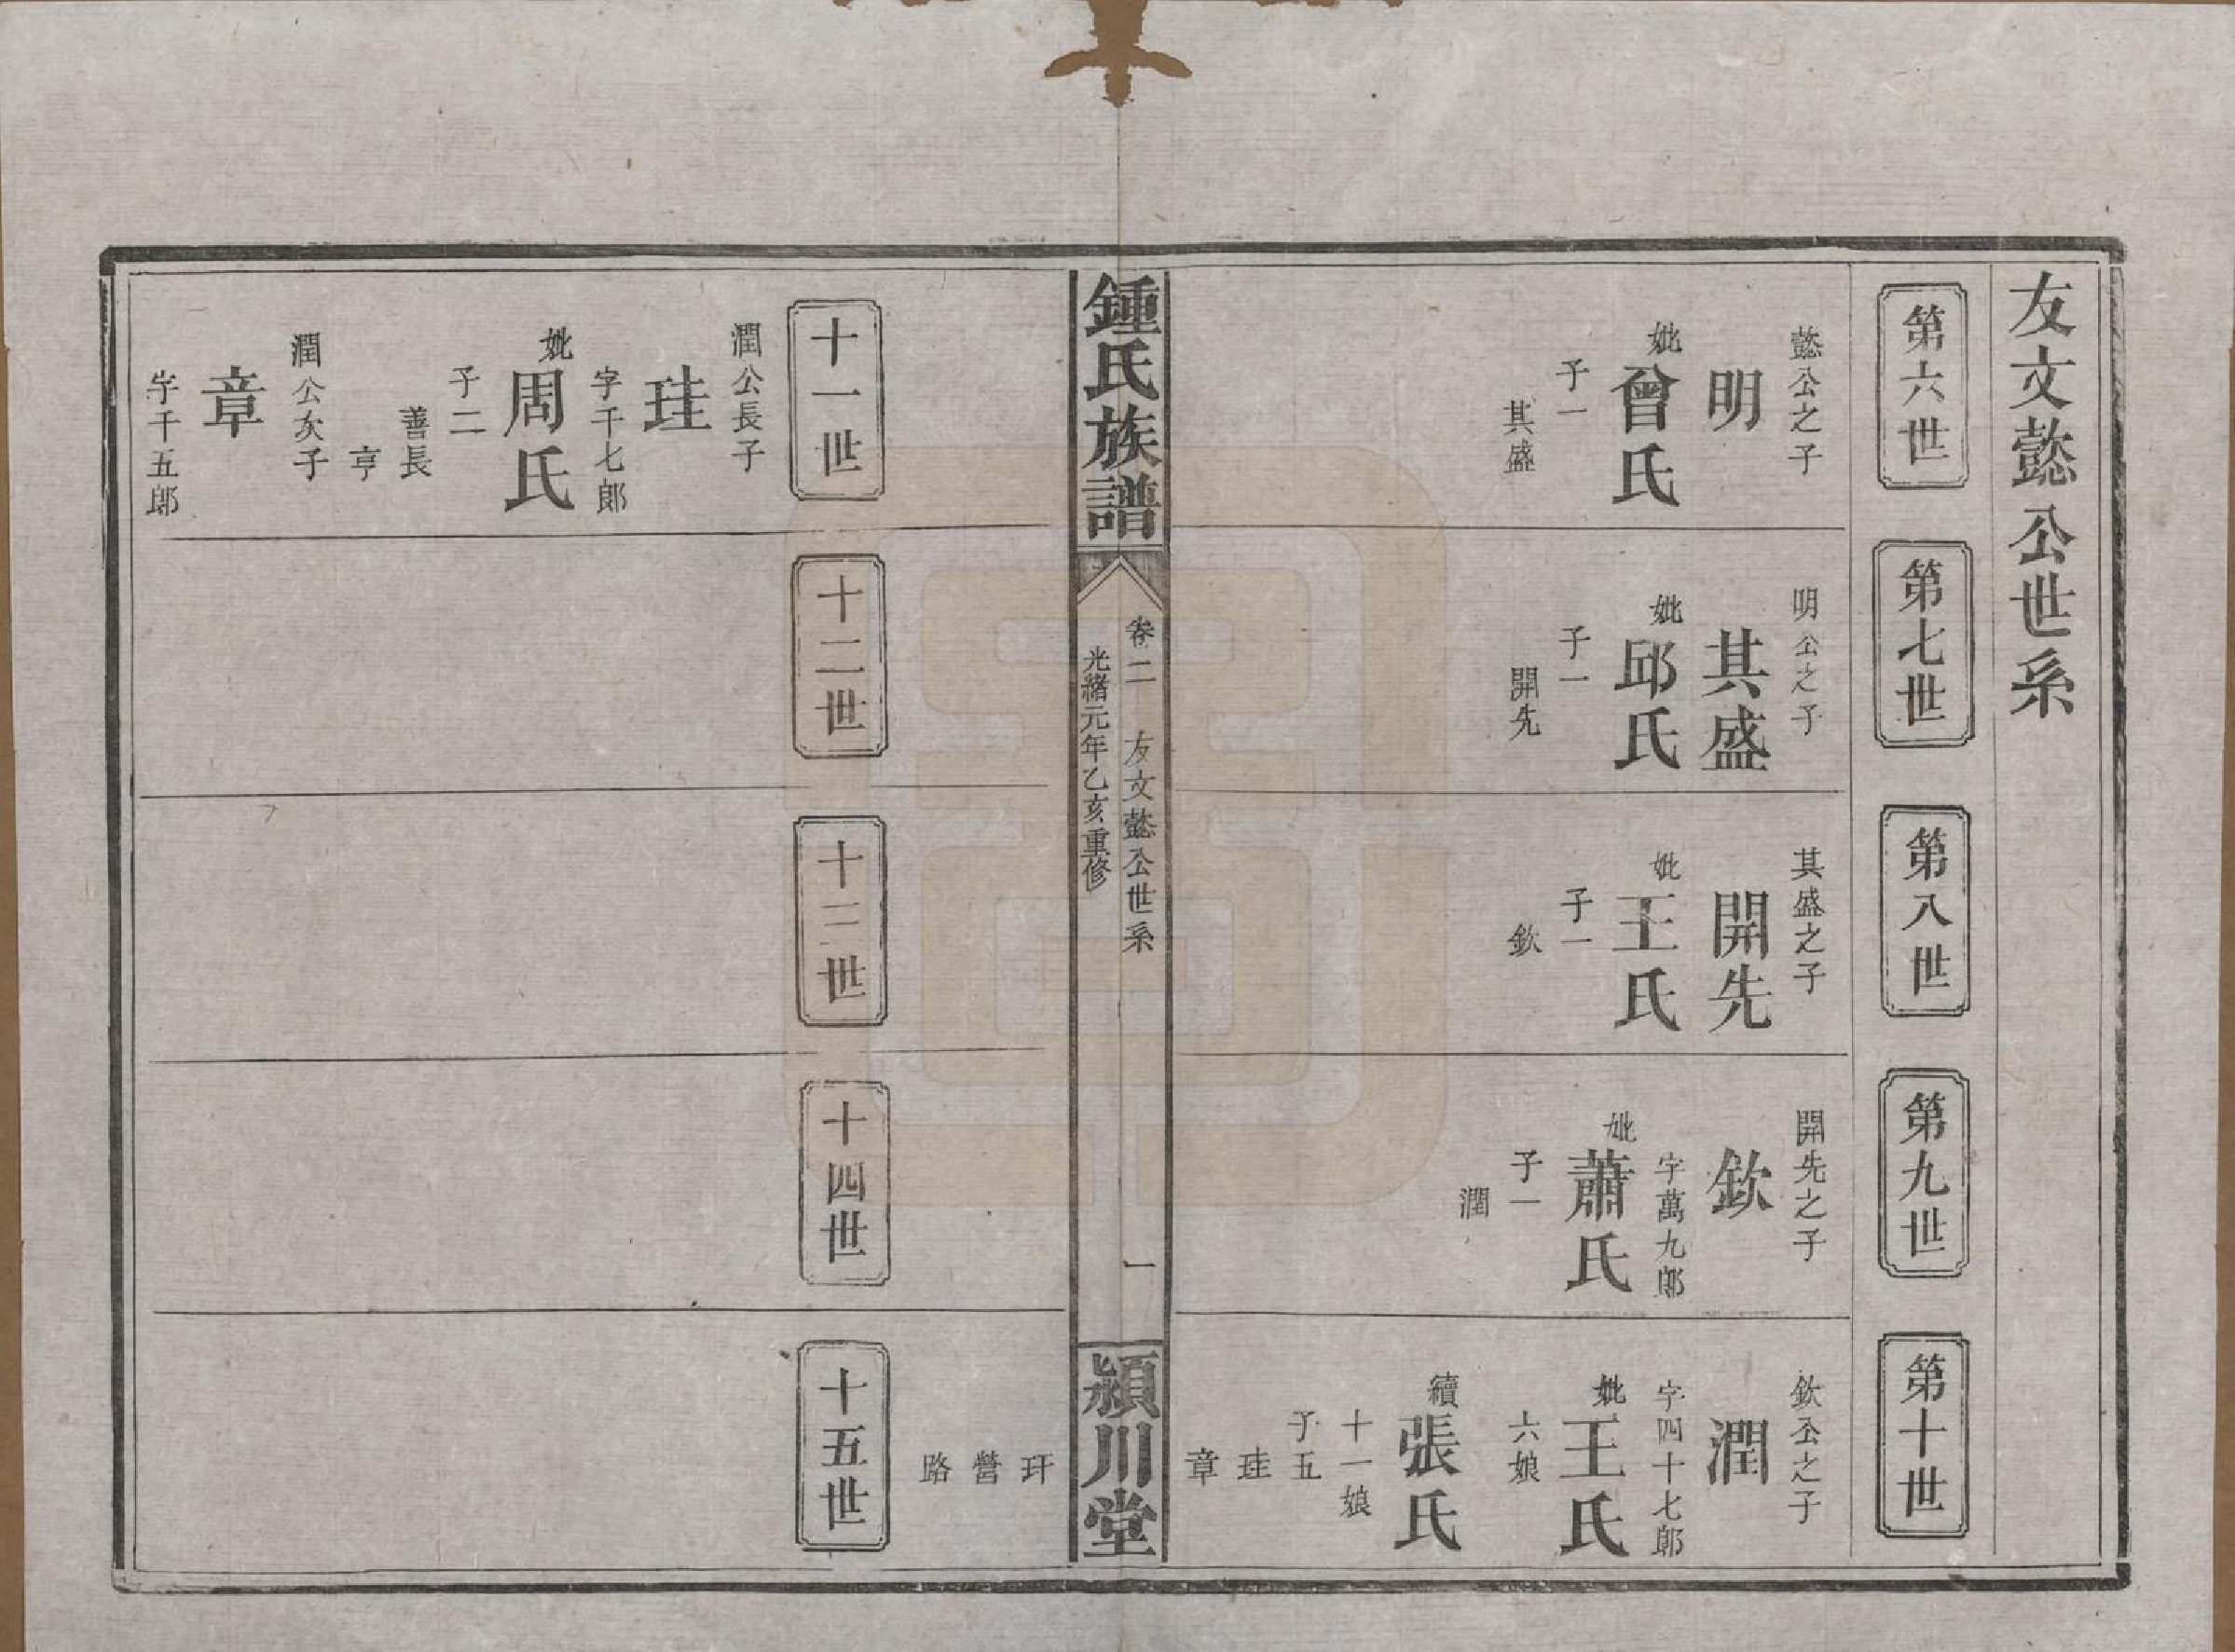 友文懿公世系
第六世
懿公之子
明
妣曾氏
子一
其盛
第七世
明公之子
其盛
妣邱氏
子一
開先
第八世
其盛之子
開先
妣王氏
子一
欽
第九世
開先之子
欽
字萬九郎
妣蕭氏
子一
潤
第十世
欽公之子
潤
字四十七郎
妣王氏
六娘
續張氏
十一娘
子五
珪
章
玕
營
路
鍾氏族譜
卷二 友文懿公世系 一
光緒元年乙亥重修
潁川堂
十一世
潤公長子
珪
字千七郎
妣周氏
子二
善長
亨
潤公次子
章
字千五郎
十二世
十三世
十四世
十五世